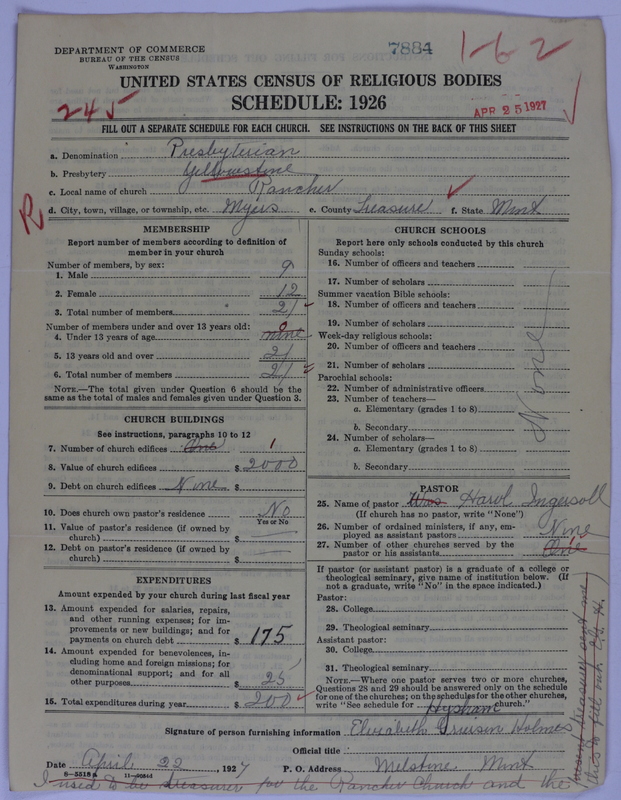 DEPARTMENT OF COMMERCE
BUREAU OF THE CENSUS
WASHINGTON
7884
1-62
UNITED STATES CENSUS OF RELIGIOUS BODIES
SCHEDULE: 1926
245
APR 25 1927
FILL OUT A SEPARATE SCHEDULE FOR EACH CHURCH. SEE INSTRUCTIONS ON THE BACK OF THIS SHEET
a. Denomination Presbyterian
b. Presbytery Yellowstone
c. Local name of church Rancher
d. City, town, village, or township, etc. Myers e. County Treasure f. State Mont
R
MEMBERSHIP
Report number of members according to definition of member in your church
Number of members, by sex:
1. Male 9
2. Female 12
3. Total number of members 21
Number of members under and over 13 years old:
4. Under 13 years of age none 0
5. 13 years old and over 21
6. Total number of members 21
NOTE.—The total given under Question 6 should be the same as the total of males and females given under Question 3.
CHURCH BUILDINGS
See instructions, paragraphs 10 to 12
7. Number of church edifices One 1
8. Value of church edifices $ 2000
9. Debt on church edifices None $
10. Does church own pastor's residence No
Yes or No
11. Value of pastor's residence (if owned by church) $
12. Debt on pastor's residence (if owned by church) $
EXPENDITURES
Amount expended by your church during last fiscal year
13. Amount expended for salaries, repairs, and other running expenses; for improvements or new buildings; and for payments on church debt $ 175
14. Amount expended for benevolences, including home and foreign missions; for denominational support; and for all other purposes $ 25
15. Total expenditures during year $ 200
CHURCH SCHOOLS
Report here only schools conducted by this church
Sunday schools:
16. Number of officers and teachers
17. Number of scholars
Summer vacation Bible schools:
18. Number of officers and teachers
19. Number of scholars
Week-day religious schools:
20. Number of officers and teachers
21. Number of scholars
Parochial schools:
22. Number of administrative officers
23. Number of teachers—
a. Elementary (grades 1 to 8)
b. Secondary
24. Number of scholars—
a. Elementary (grades 1 to 8)
b. Secondary
None
PASTOR
25. Name of pastor Harol Ingersoll
(If church has no pastor, write "None")
26. Number of ordained ministers, if any, employed as assistant pastors None
27. Number of other churches served by the pastor or his assistants One
If pastor (or assistant pastor) is a graduate of a college or theological seminary, give name of institution below. (If not a graduate, write "No" in the space indicated.)
Pastor:
28. College
29. Theological seminary
Assistant pastor:
30. College
31. Theological seminary
NOTE.—Where one pastor serves two or more churches, Questions 28 and 29 should be answered only on the schedule for one of the churches; on the schedules for the other churches, write "See schedule for Hysham church."
Signature of person furnishing information Elizabeth Holmes
Official title
Date April 22, 1927 P. O. Address Melstone Mont
8-5518a 11-9084d
I used to be treasurer for the Rancher Church and the